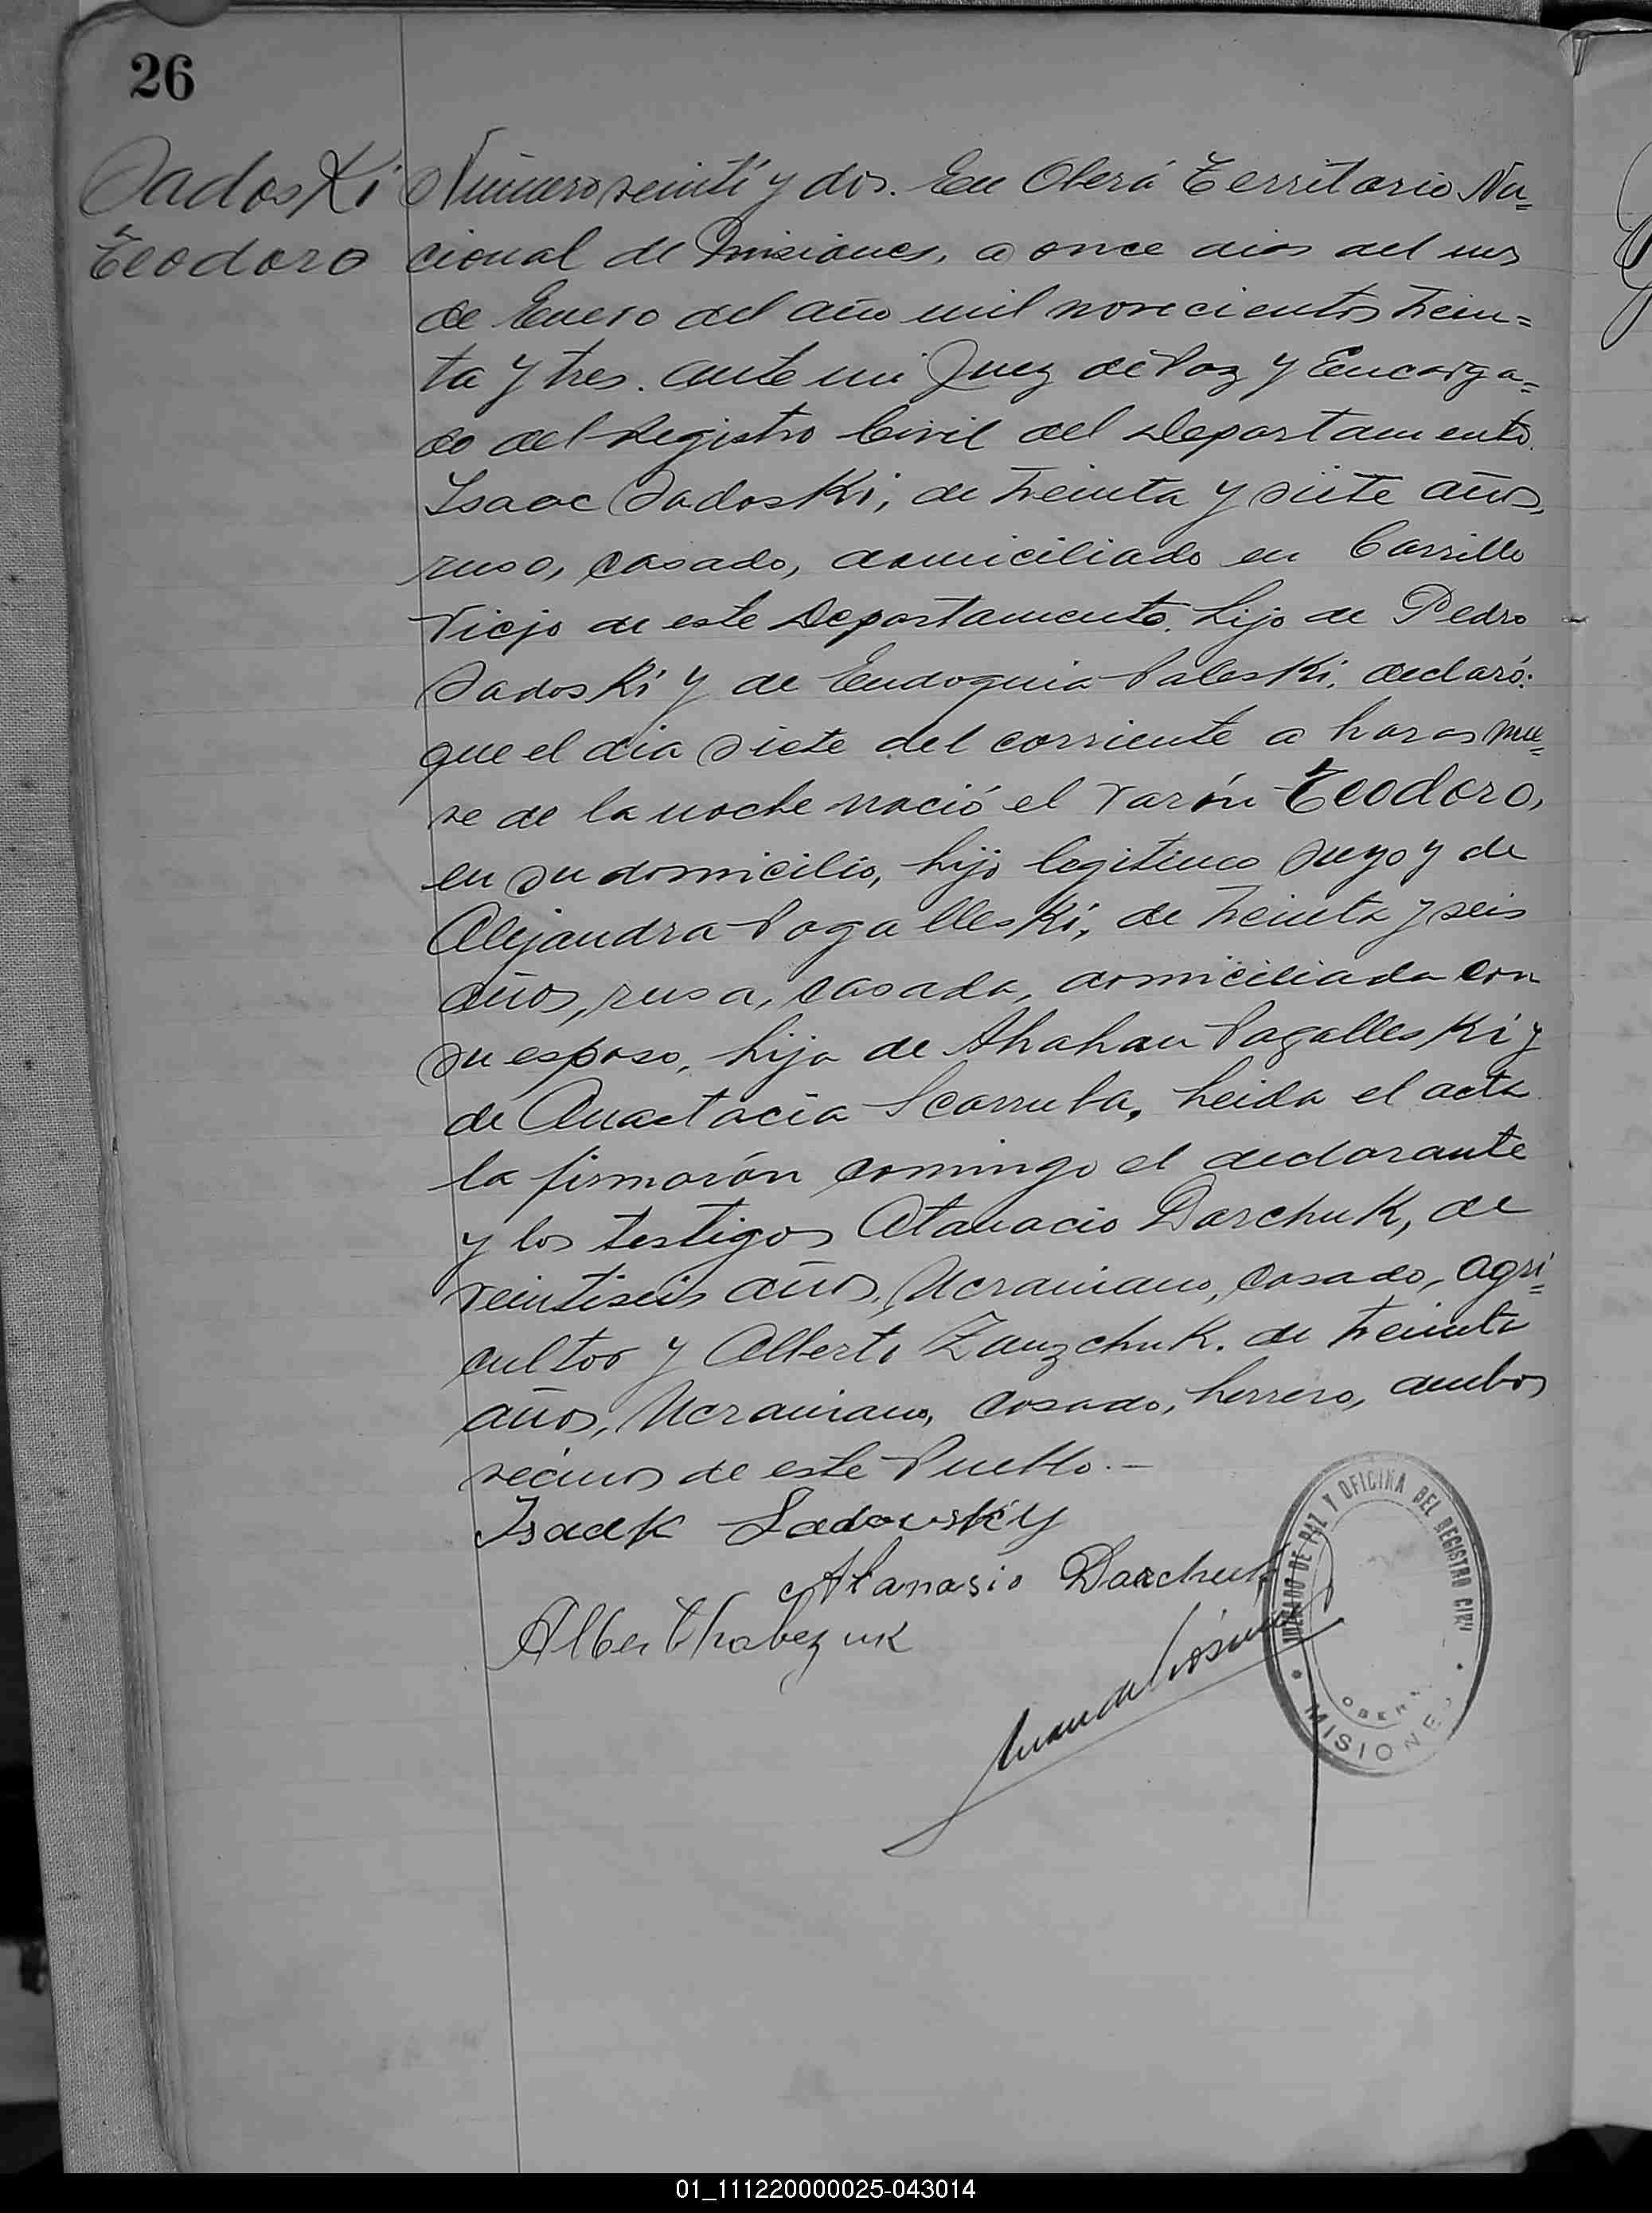 26
Sadoski
Teodoro
Número veinti y dos. En Oberá Territorio Na=
cional de Misiones, a once dias del mes
de Enero del año mil novecientos trein=
ta y tres. ante mi Juez de Paz y Encarga=
do del Registro Civil del Departamento.
Isaac Sadoski, de treinta y siete años,
ruso, casado, domiciliado en Barrillo
Viejo de este Departamento. hijo de Pedro
Sadoski y de Eudoquia Paleski, declaró:
que el dia siete del corriente a horas nue=
ve de la noche nació el varón Teodoro,
en su domicilio, hijo legitimo suyo y de
Alejandra Pogalleski, de treinta y seis
años, rusa, casada, domiciliada con
su esposo, hija de Pagalleski y
de Anastacia Scarruba, leida el acta
la firmarón conmingo el declarante
y los testigos Atanacio Darchuk, de
veintiseis años, Ucraniano, casado, agri=
cultor y Alberto Zauzchuk. de treinta
años, Ucraniano, casado, herrero, ambos
vecinos de este Pueblo.—
Isaak Sadowskiy
Atanasio Darchuk
Alber
JUZGADO DE PAZ Y OFICINA DEL REGISTRO CIVIL
OBERA
MISIONES
01_111220000025-043014